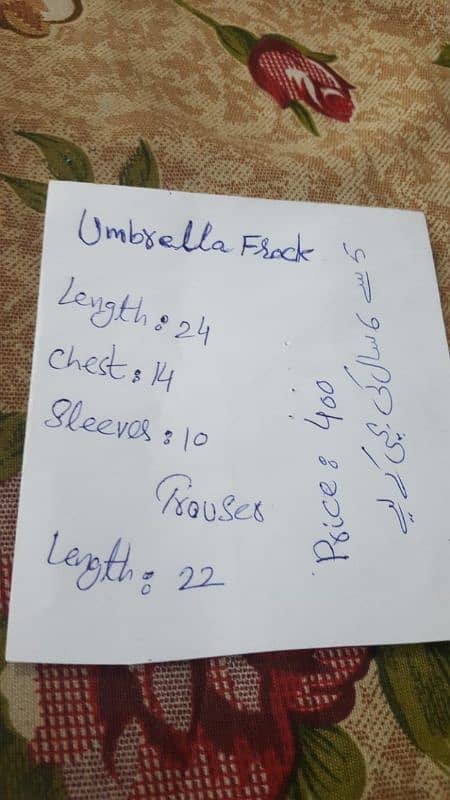 Umbrella Frock
Length: 24
Chest: 14
Sleeves: 10
Trouser
Length: 22
Price: 400
5 سے 6 سال کی بچی کے لیے